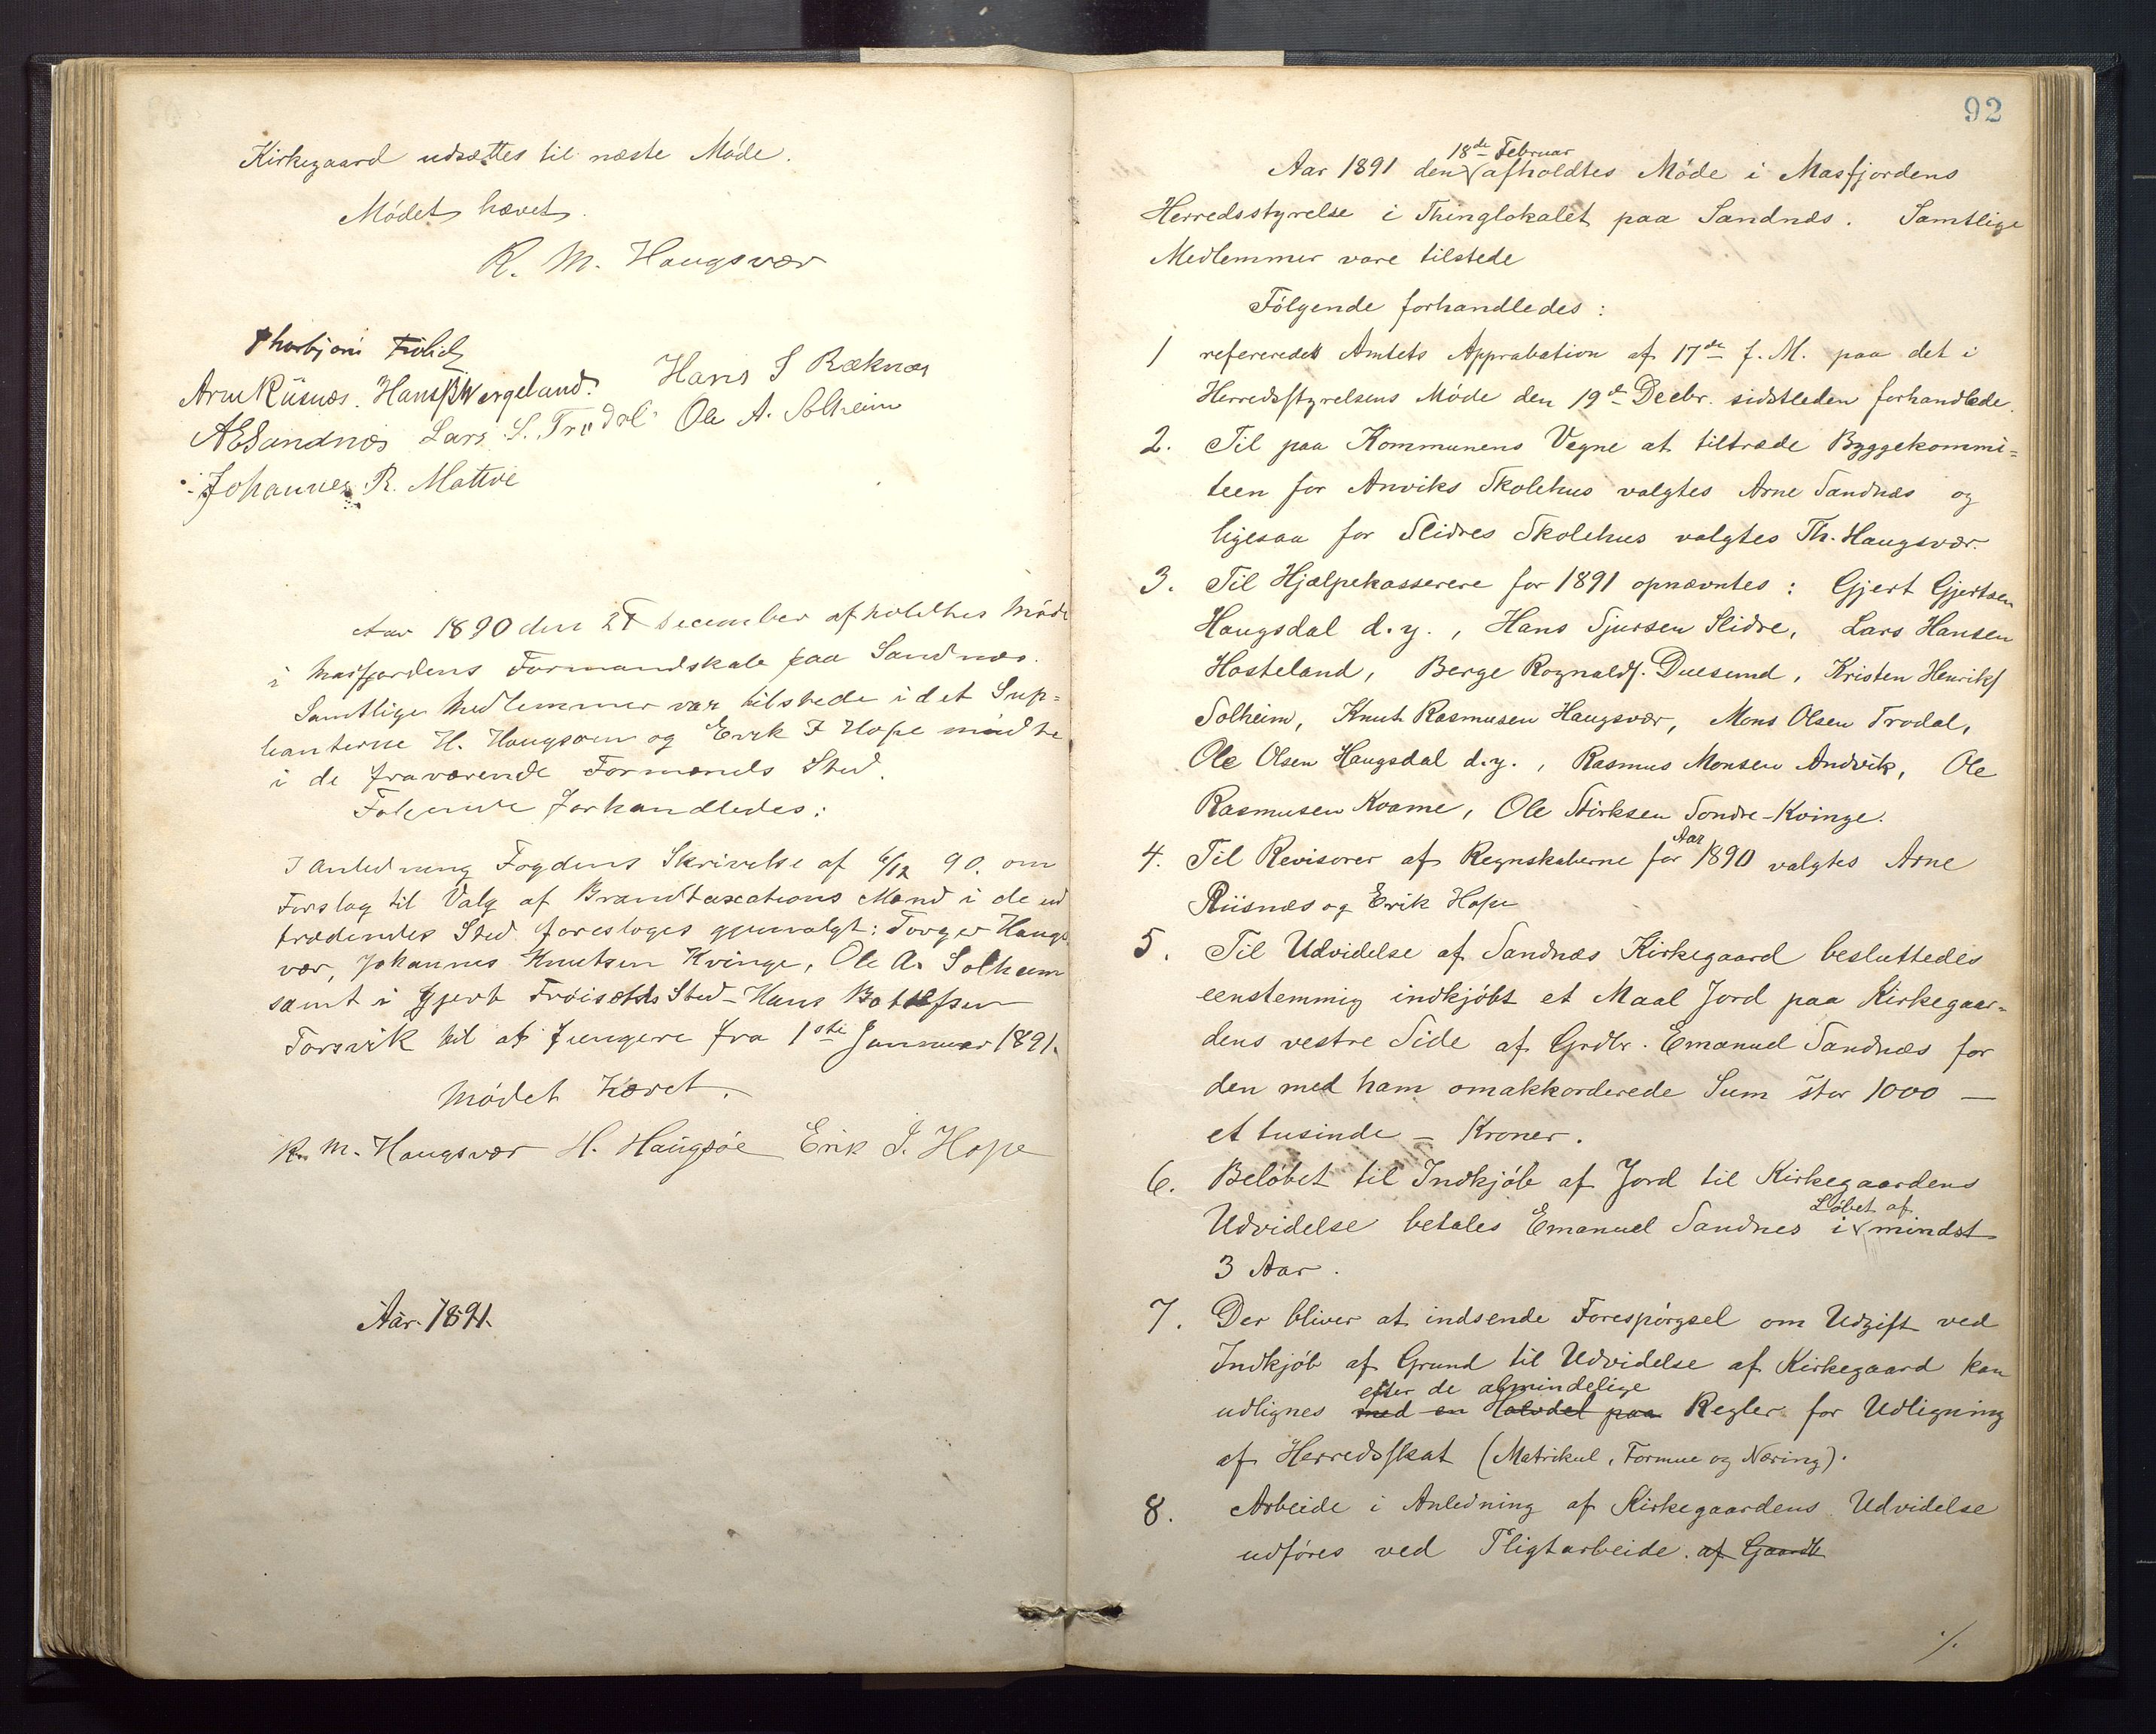 Kirkegaard udsættes til næste Møde.
Mødet hævet.
R. M. Haugsvær
Thorbjørn Frølid
Arne Riisnæs. Hans B Wergeland. Hans S Ræknæs
A E Sandnæs Lars S. Trodal Ole A. Solheim
Johannes R. Matre
Aar 1890 den December afholdtes Møde
i Masfjordens Formandskab paa Sandnæs.
Samtlige Medlemmer var tilstede idet Sup-
leanterne H. Haugsøen og Erik I Hope mødte
i de fraværende Formænds Sted.
Følgende forhandledes:
I Anledning Fogdens Skrivelse af 6/12 90. om
Forslag til Valg af Brandtaxations Mænd i de ud
trædendes Sted foresloges gjenvalgt: Torger Haugs
vær, Johannes Knutsen Kvinge, Ole A. Solheim
samt i Gjert Frøisets Sted - Hans Bottelfsen
Torsvik til at fungere fra 1ste Januar 1891.
Mødet hævet.
R. M. Haugsvær H. Haugsøe Erik I. Hope
Aar 1891.
92
18de Februar
Aar 1891 den afholdtes Møde i Masfjordens
Herredsstyrelse i Thinglokalet paa Sandnæs. Samtlige
Medlemmer vare tilstede
Følgende forhandledes:
1 refereredes Amtets Approbation af 17de f. M. paa det i
Herredsstyrelsens Møde den 19de Decbr. sidstleden forhandlede.
2. Til paa Kommunens Vegne at tiltræde Byggekommi=
teen for Anviks Skolehus valgtes Arne Sandnæs og
ligesaa for Slidres Skolehus valgtes Th. Haugsvær.
3. Til Hjælpekasserere for 1891 opnævntes: Gjert Gjertsen
Haugsdal d.y., Hans Sjursen Slidre, Lars Hansen
Hosteland, Berge Rognalds. Duesund, Kristen Henriks
Solheim, Knut Rasmusen Haugsvær, Mons Olsen Trodal,
Ole Olsen Haugsdal d.y., Rasmus Monsen Andvik, Ole
Rasmusen Kvame, Ole Størksen Søndre-Kvinge.
Aar
4. Til Revisorer af Regnskaberne for 1890 valgtes Arne
Riisnæs og Erik Hope
5. Til Udvidelse af Sandnæs Kirkegaard besluttedes
eenstemmig indkjøbt et Maal Jord paa Kirkegaar-
dens vestre Side af Grdbr. Emanuel Sandnæs for
den med ham omakkorderede Sum stor 1000 —
et tusinde – Kroner.
6. Beløbet til Indkjøb af Jord til Kirkegaardens
Løbet af
Udvidelse betales Emanuel Sandnes i mindst
3 Aar.
7. Der bliver at indsende Forespørgsel om Udgift ved
Indkjøb af Grund til Udvidelse af Kirkegaard kan
efter de almindelige
udlignes med en Halvdel paa Regler for Udligning
af Herredsskat (Matrikul, Formue og Næring).
8. Arbeide i Anledning af Kirkegaardens Udvidelse
udføres ved Pligtarbeide. af Gaardb
./.